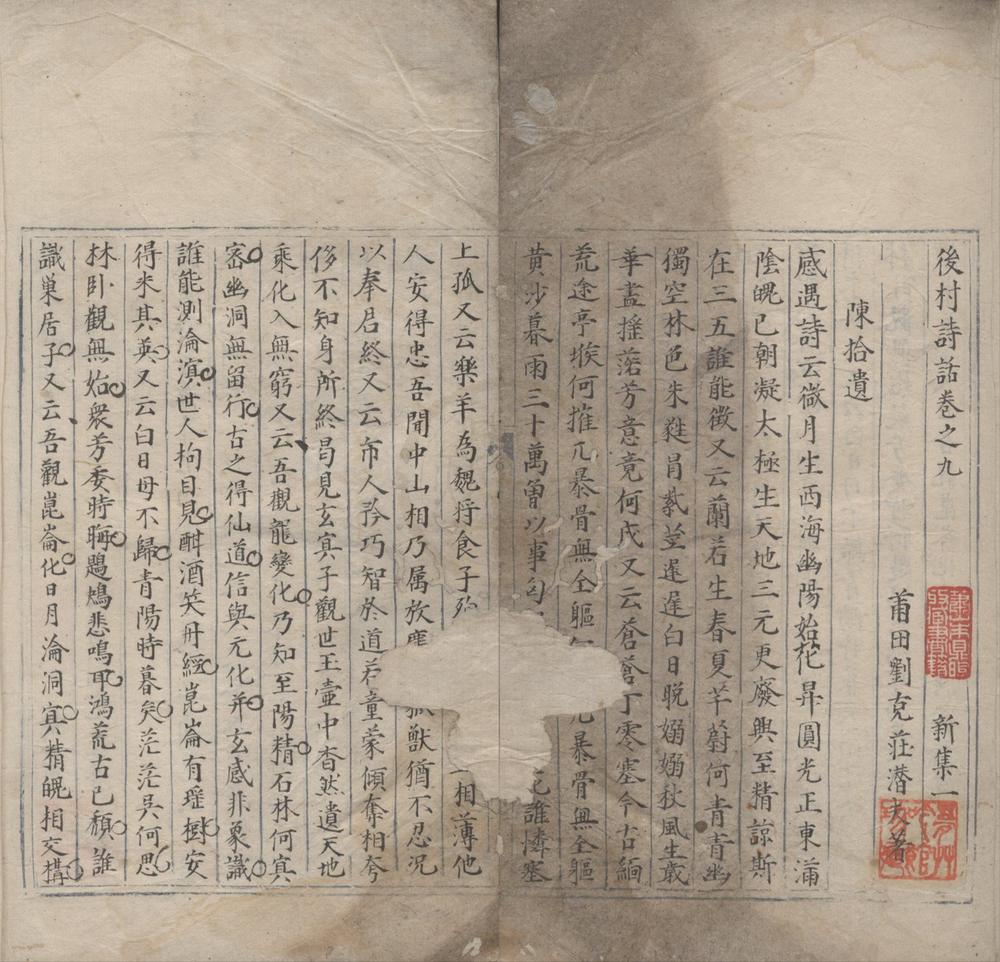 後村詩話卷之九　新集一
莆田劉克莊潛夫著
陳拾遺
感遇詩云微月生西海幽陽始花昇圓光正東滿
陰魄已朝凝太極生天地三元更廢興至精諒斯
在三五誰能徵又云蘭若生春夏芊蔚何青青幽
獨空林色朱蕤冒紫莖遲遲白日晚嫋嫋秋風生歲
華盡搖落芳意竟何成又云蒼蒼丁零塞今古緬
荒途亭堠何摧兀暴骨無全軀
黃沙暮雨三十萬曾以事匈 誰憐塞
上孤又云樂羊為魏將食子殉 相薄他
人安得忠吾聞中山相乃属放麑 獸猶不忍况
以奉君終又云市人矜巧智於道若童蒙傾奪相夸
侈不知身所終曷見玄冥子觀世玉壺中杳然遺天地
乘化入無窮又云吾觀龍變化乃知至陽精石林何冥
密幽洞無留行古之得仙道信與元化并玄感非象識
誰能測淪溟世人拘目見酣酒笑丹經崑崙有瑶樹安
得来其英又云白日每不歸青陽時暮矣茫茫吳何思
林卧觀無始衆芳委時晦鶗鴂悲鳴耳鴻荒古已頹誰
識巢居子又云吾觀崑崙化日月淪洞冥精魄相交構